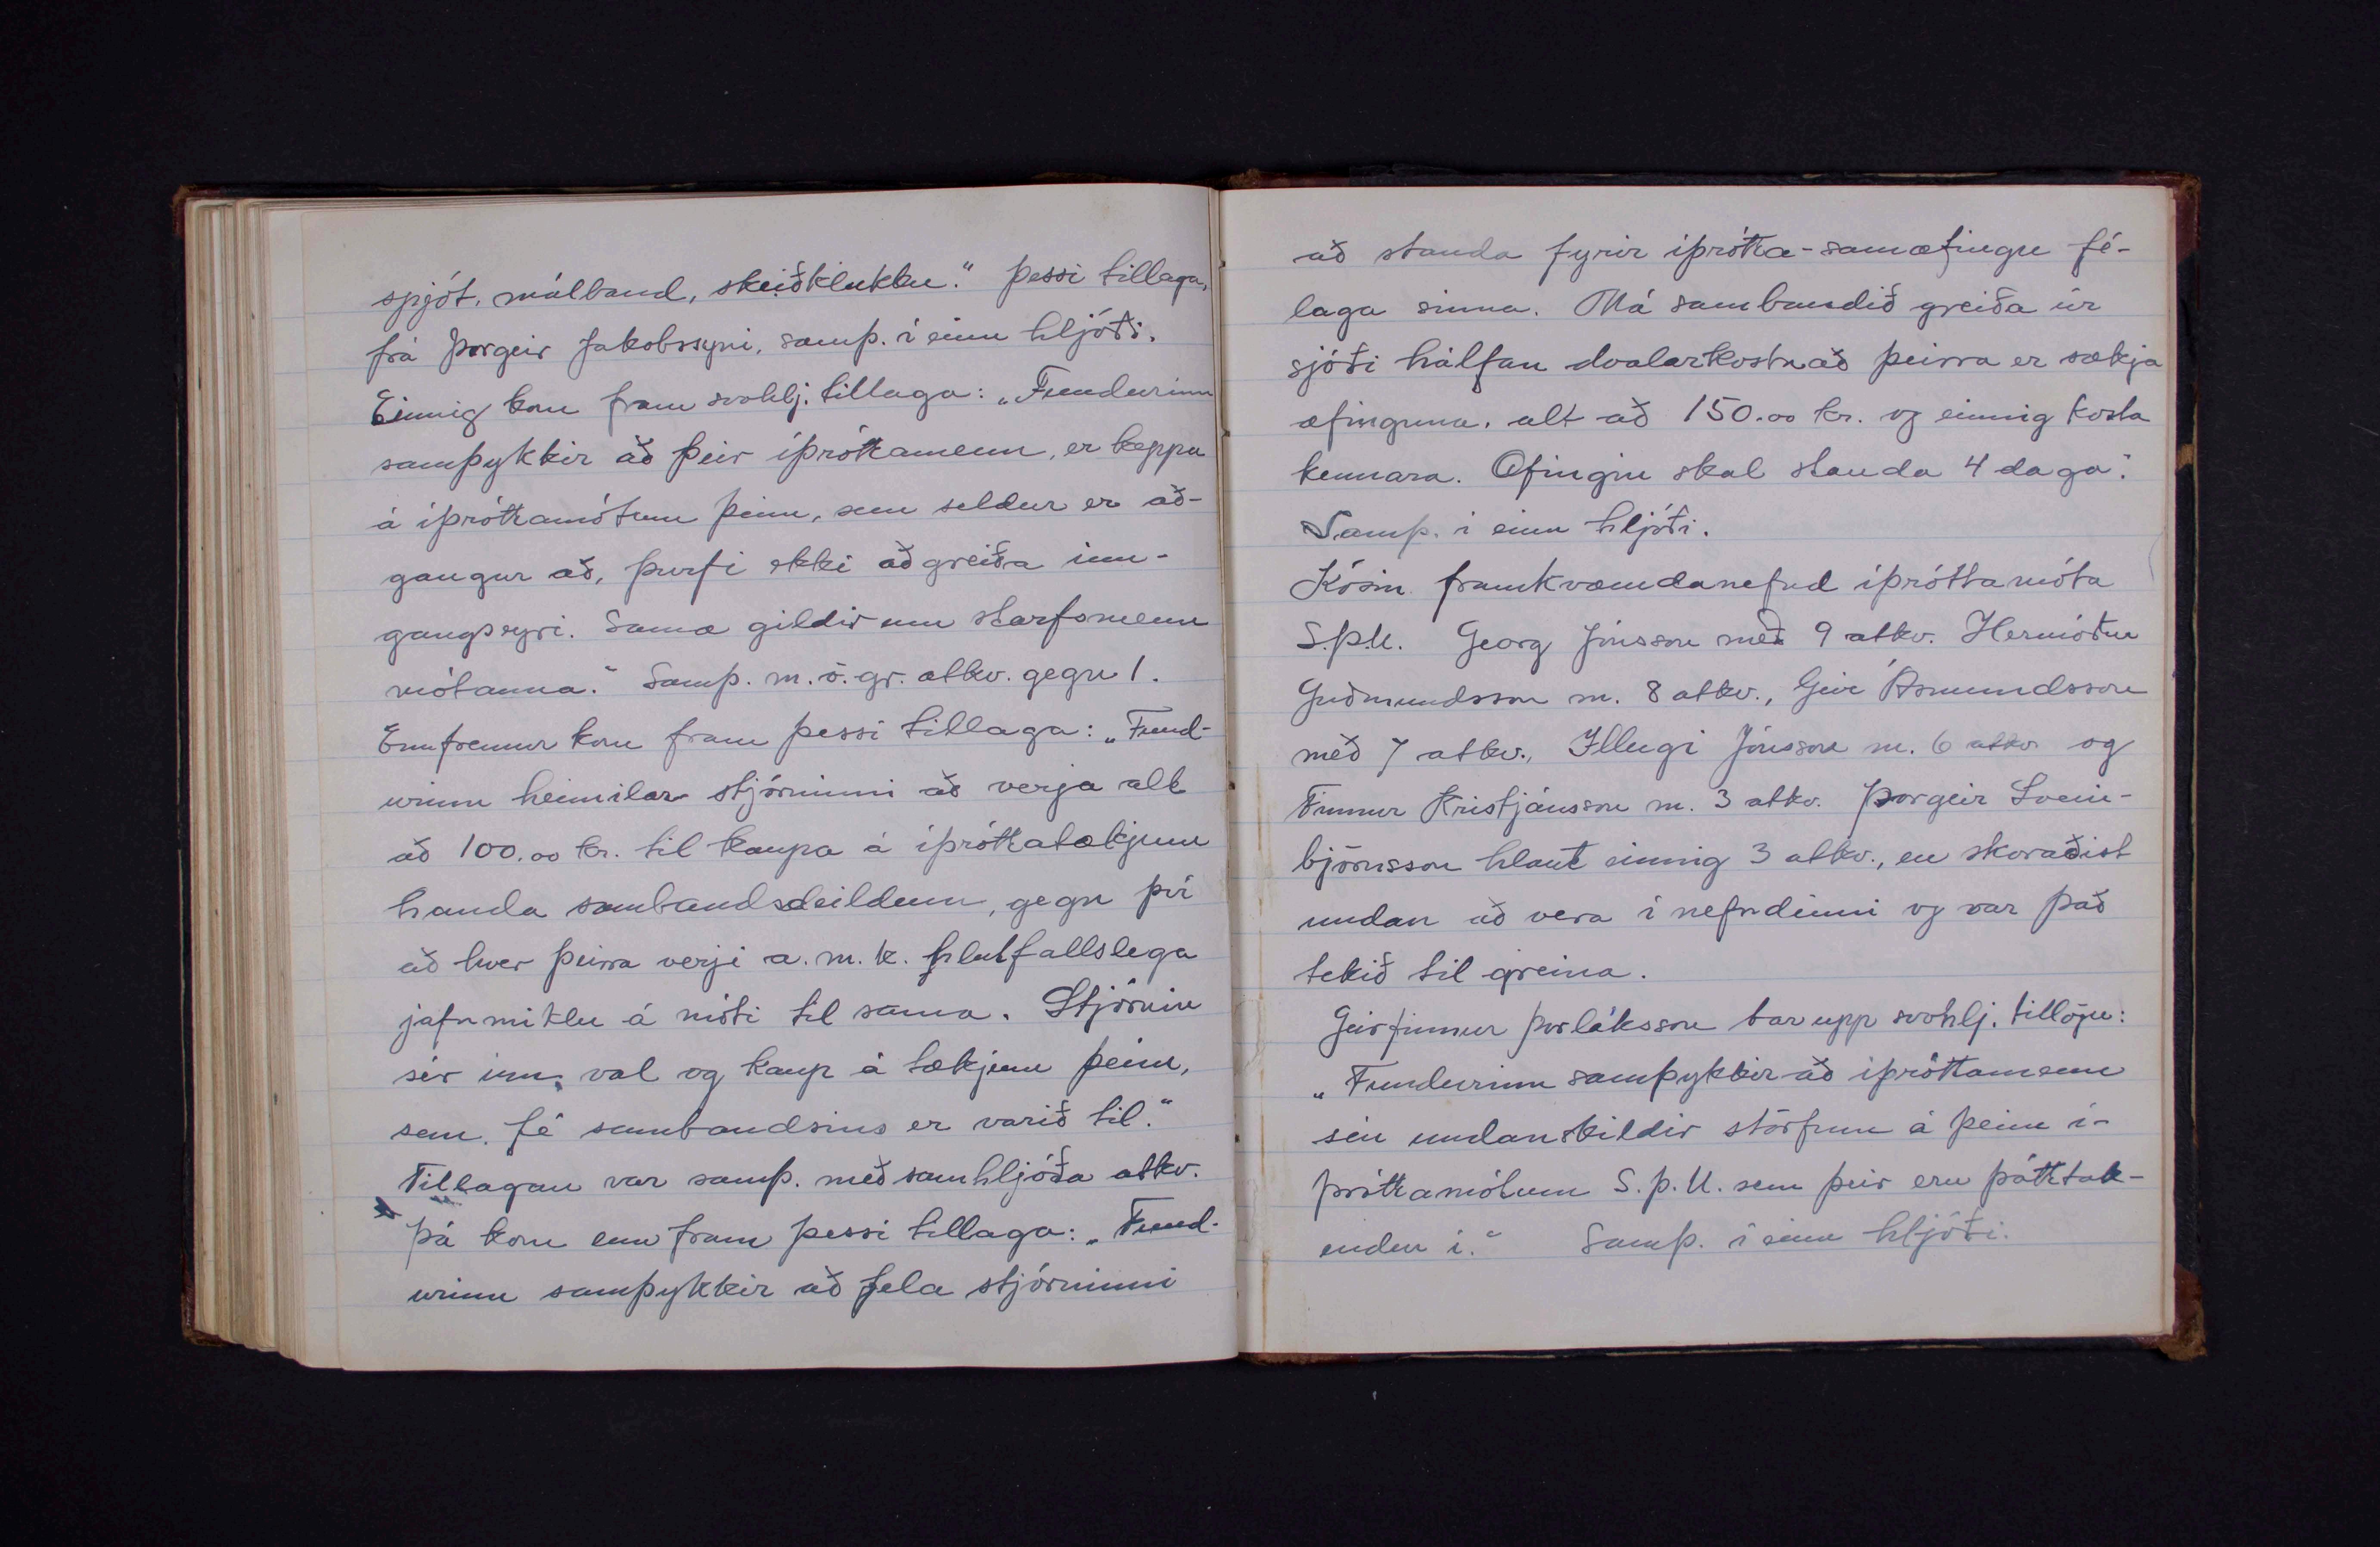 spjót, málband, skeiðklukku." Þessi tillaga,
frá Þorgeir Jakobssyni, samþ. í einu hljóði.
Einnig kom fram svohlj. tillaga: „Fundurinn
samþykkir að þeir íþróttamenn, er keppa
á íþróttamótum þeim, sem seldur er að-
gangur að, þurfi ekki að greiða inn-
gangseyri. Sama gildir um starfsmenn
mótanna." Samþ. m. ö. gr. atkv. gegn 1.
Ennfremur kom fram þessi tillaga: „Fund-
urinn heimilar stjórninni að verja alt
að 100.00 kr. til kaupa á íþróttatækjum
handa sambandsdeildum, gegn því
að hver þeirra verji a. m. k. hlutfallslega
jafnmiklu á móti til sama. Stjórnin
sér um val og kaup á tækjum þeim,
sem fé sambandsins er varið til."
Tillagan var samþ. með samhljóða atkv.
Þá kom enn fram þessi tillaga: „Fund-
urinn samþykkir að fela stjórninni
að standa fyrir íþrótta-samæfingu fé-
laga sinna. Má sambandið greiða úr
sjóði hálfan dvalarkostnað þeirra er sækja
æfinguna, alt að 150.00 kr. og einnig kosta
kennara. Æfingin skal standa 4 daga."
Samþ. í einu hljóði.
Kosin framkvæmdanefnd íþróttamóta
S.Þ.U. Georg Jónsson með 9 atkv. Hermóður
Guðmundsson m. 8 atkv., Geir Ásmundsson
með 7 atkv., Illugi Jónsson m. 6 atkv og
Finnur Kristjánsson m. 3 atkv. Þorgeir Svein-
björnsson hlaut einnig 3 atkv., en skoraðist
undan að vera í nefndinni og var það
tekið til greina.
Geirfinnur Þorláksson bar upp svohlj. tillögu:
„Fundurinn samþykkir að íþróttamenn
séu undanskildir störfum á þeim í-
þróttamótum S.Þ.U. sem þeir eru þátttak-
endur í." Samþ. í einu hljóði.